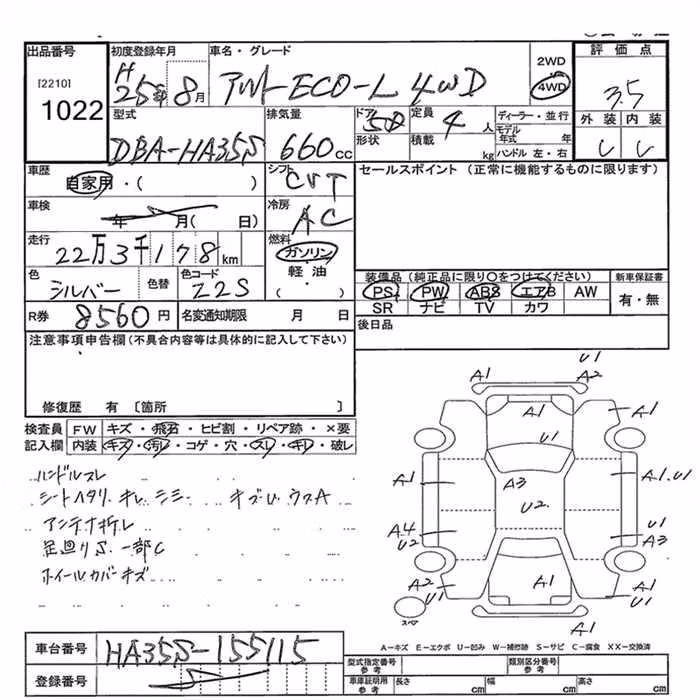 出品番号 初度登録年月 車名・グレード 2WD 4WD 評価点
[2210] H 25年 8月 アルト ECO-L 4WD 3.5
1022 外装 内装
型式 排気量 ドア 定員 ディーラー・並行
DBA-HA35S 660cc 5D 4人 モデル年式 年
形状 積載 kg ハンドル 左・右
車歴 シフト セールスポイント (正常に機能するものに限ります)
自家用・( ) CVT
車検 冷房
年 月( 日) AC
走行 燃料
22万3千178km ガソリン
軽油
( )
色 色替 色コード 装備品 (純正品に限り〇をつけてください) 新車保証書
シルバー 22S PS PW ABS エアB AW 有・無
SR ナビ TV カワ
R券 8560円 名変通知期限 月 日 後日品
注意事項申告欄(不具合内容等は具体的に記入して下さい)
修復歴 有 〔箇所 〕
検査員 FW キズ・飛石・ヒビ割・リペア跡・×要
記入欄 内装 キズ・汚レ・コゲ・穴・スレ・キレ・破レ
ハンドルスレ
シートヘタリ キレ シミ キズ U ウスA
アンテナ折レ
足廻りS 一部C
ホイールカバーキズ
U1
A1 A2
A1 A1
U1
A1 A3 A1.U1
U2
A4 U1
U2 A3
A2 A1 A1
U1 U1
スペア
A1
A-キズ E-エクボ U-凹み W-補修跡 S-サビ C-腐食 XX-交換済
車台番号 HA35S-155115
登録番号
型式指定番号 参考 類別区分番号 参考
車庫証明用 参考 長さ cm 幅 cm 高さ cm